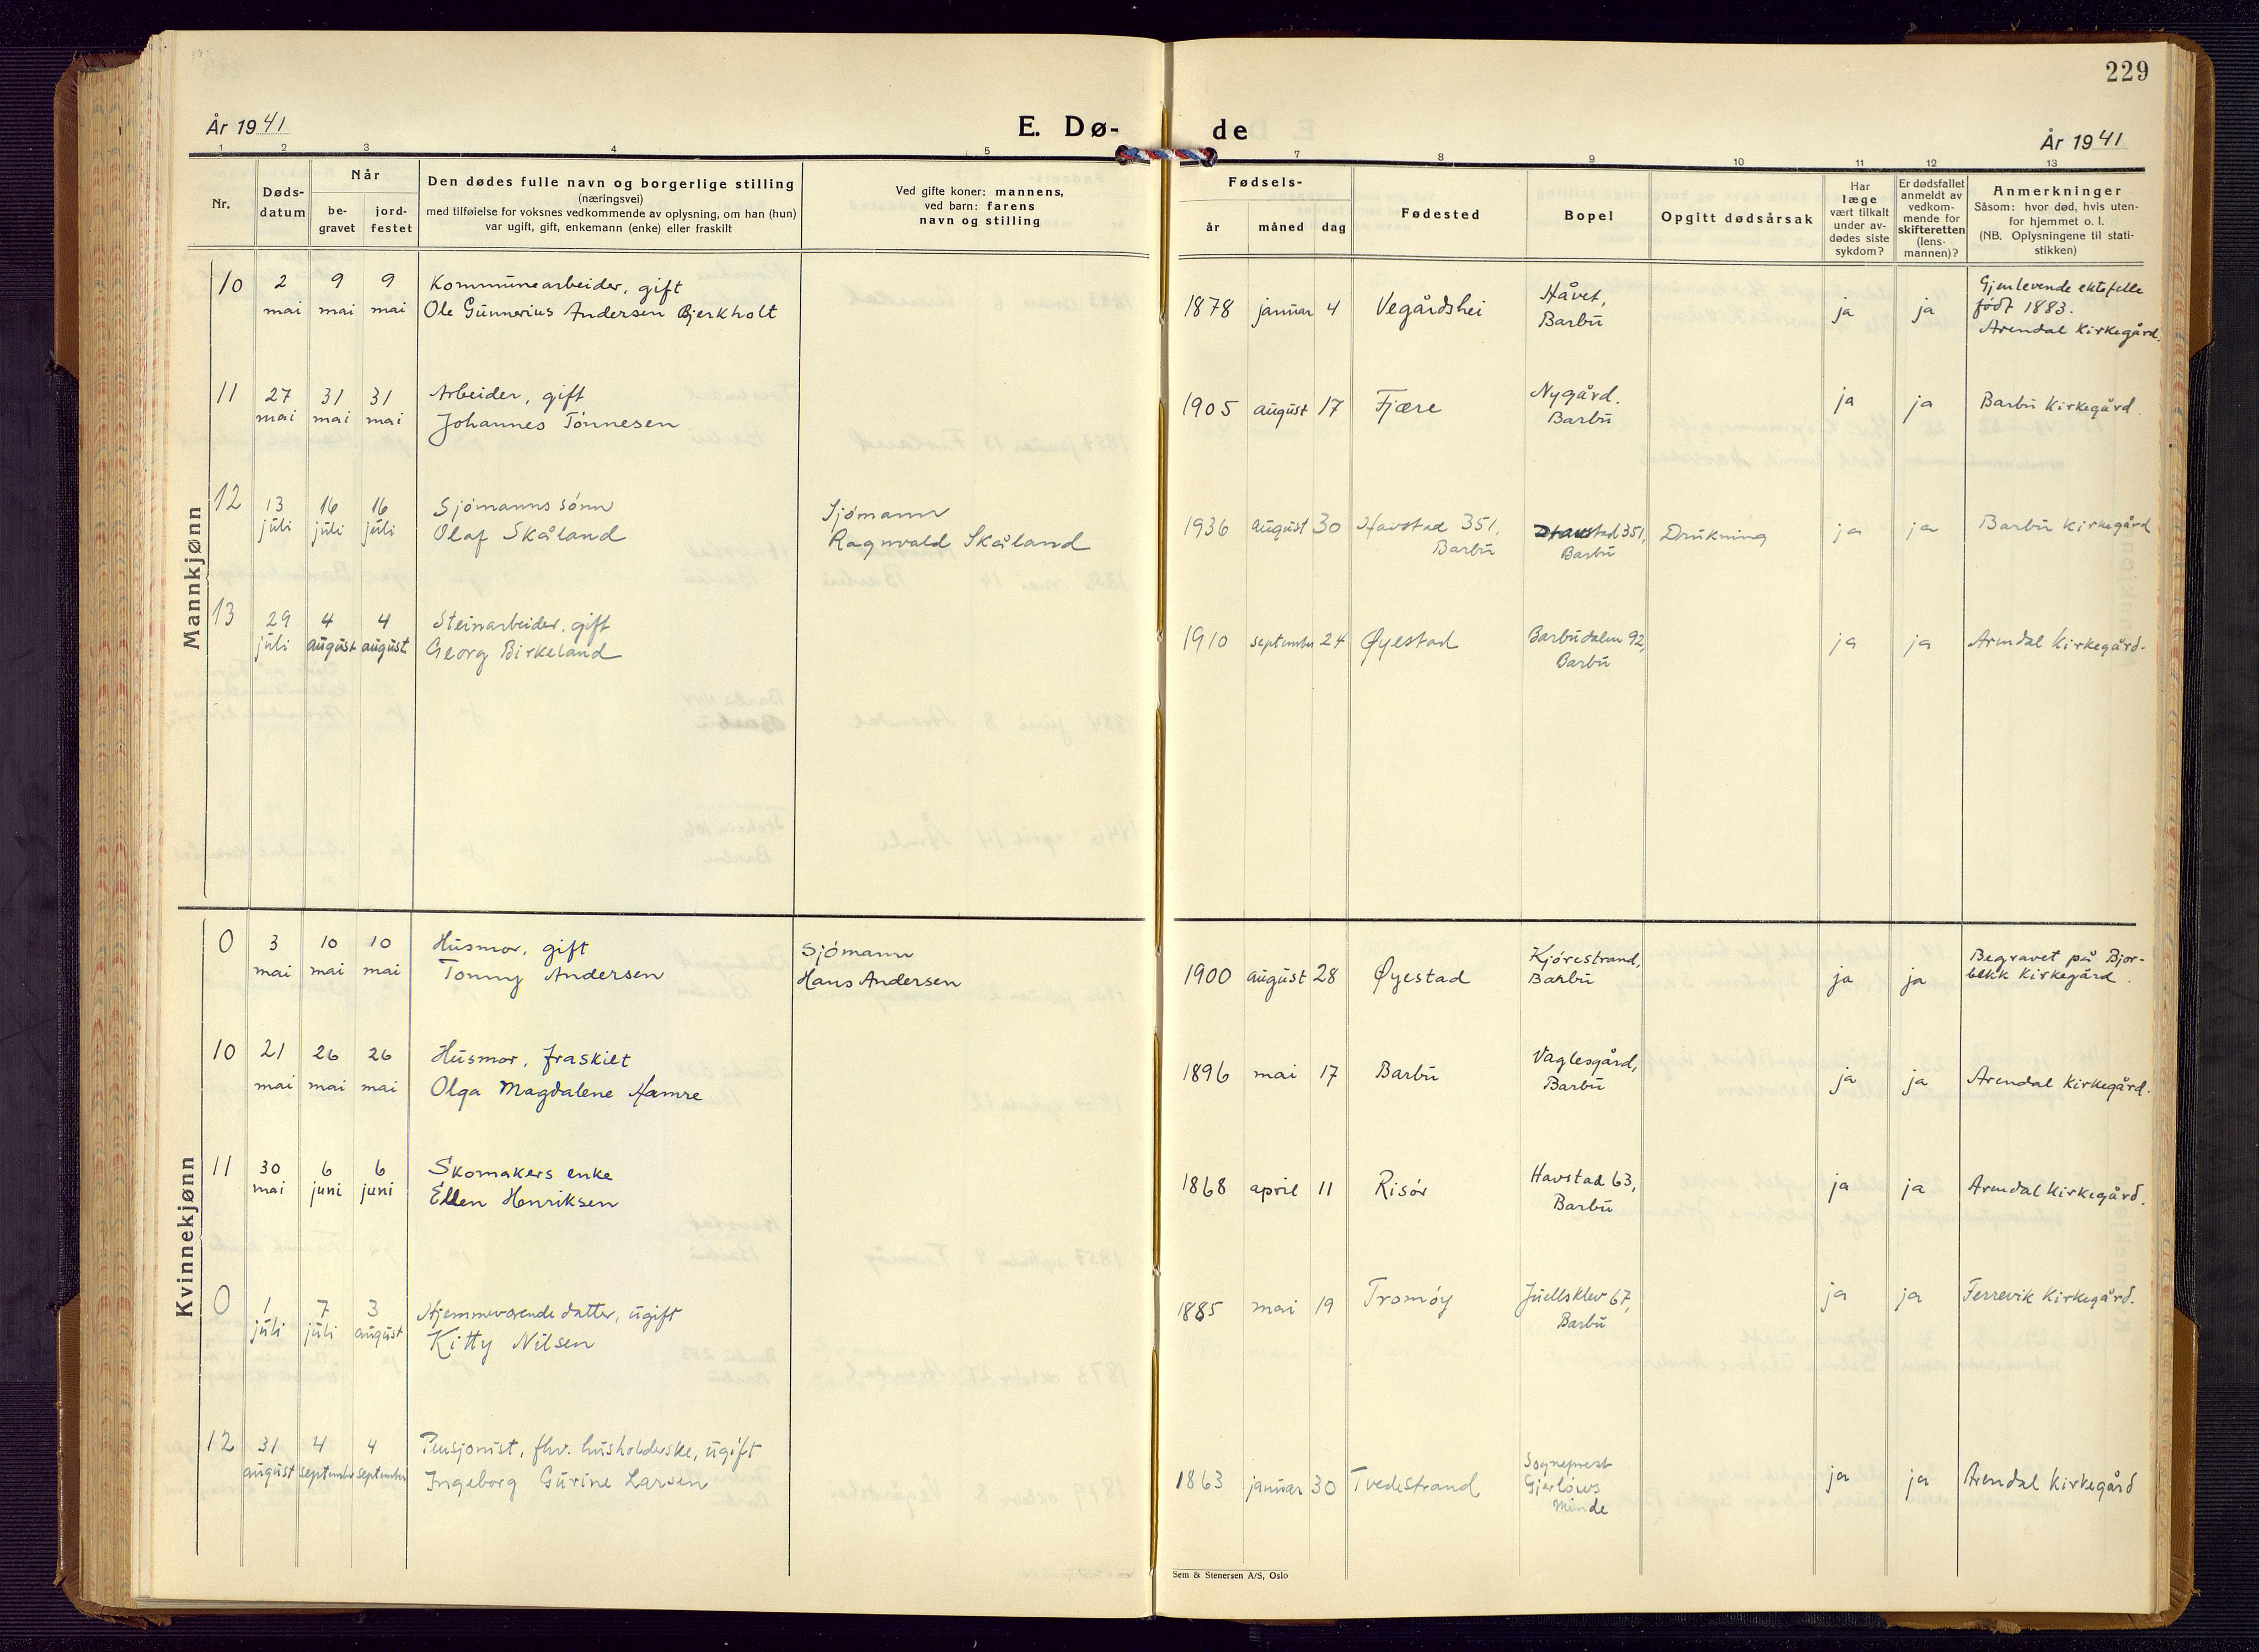 229
År 1941
E. Dø-
de
År 1941
1 2 3 4 5 7 8 9 10 11 12 13
Nr.
Døds-
datum
Når
be-
gravet
jord-
festet
Den dødes fulle navn og borgerlige stilling
(næringsvei)
med tilføielse for voksnes vedkommende av oplysning, om han (hun)
var ugift, gift, enkemann (enke) eller fraskilt
Ved gifte koner: mannens,
ved barn: farens
navn og stilling
Fødsels-
år måned dag
Fødested
Bopel
Opgitt dødsårsak
Har
læge
vært tilkalt
under av-
dødes siste
sykdom?
Er dødsfallet
anmeldt av
vedkom-
mende for
skifteretten
(lens-
mannen)?
Anmerkninger
Såsom: hvor død, hvis uten-
for hjemmet o. l.
(NB. Oplysningene til stati-
stikken)
Mannkjønn
10 2 9 9 Kommunearbeider, gift
mai mai mai Ole Gunnerius Andersen Bjerkholt
1878 januar 4 Vegårdshei Håvet,
Barbu
ja ja
Gjenlevende ektefelle
født 1883.
Arendal Kirkegård.
11 27 31 31 Arbeider, gift
mai mai mai Johannes Tønnesen
1905 august 17 Fjære Nygård.
Barbu
ja ja Barbu Kirkegård.
12 13 16 16 Sjømanns sønn
juli juli juli Olaf Skåland
Sjømann
Ragnvald Skåland
1936 august 30 Havstad 351,
Barbu
Havstad 351,
Barbu
Drukning ja ja Barbu Kirkegård
13 29 4 4 Steinarbeider, gift
juli august august Georg Birkeland
1910 september 24 Øyestad Barbudalen 92,
Barbu
ja ja Arendal Kirkegård.
Kvinnekjønn
0 3 10 10 Husmor, gift
mai mai mai Tonny Andersen
Sjømann
Hans Andersen
1900 august 28 Øyestad Kjørestrand,
Barbu
ja ja
Begravet på Bjor-
bekk Kirkegård.
10 21 26 26 Husmor, fraskilt
mai mai mai Olga Magdalene Hamre
1896 mai 17 Barbu Vaglesgård,
Barbu
ja ja Arendal Kirkegård.
11 30 6 6 Skomakers enke
mai juni juni Ellen Henriksen
1868 april 11 Risør Havstad 63,
Barbu
ja ja Arendal Kirkegård.
0 1 7 3 Hjemmeværende datter, ugift
juli juli august Kitty Nilsen
1885 mai 19 Tromøy Juellsklev 67,
Barbu
ja ja Færrevik Kirkegård.
12 31 4 4 Pensjonist, fhv. husholderske, ugift
august september september Ingeborg Gurine Larsen
1863 januar 30 Tvedestrand Sogneprest
Gjerløws
Minde
ja ja Arendal Kirkegård
Sem & Stenersen A/S, Oslo